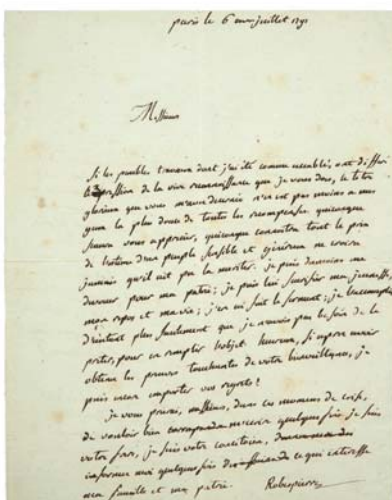 paris le 6 juillet 1791
Messieurs
Si les penibles travaux dont j'ai été comme accablé, ont différé
l'expression de la vive reconnaissance que je vous dois, le titre
glorieux que vous m'avez n'est pas moins à mes
yeux la plus douce de toutes les recompenses. quiconque
vous apprecier, quiconque connoitra tout le prix
de l'estime d'un peuple sensible et généreux ne croira
jamais qu'il ait pu la meriter. je puis
pour ma patrie; je puis lui sacrifier ma jeunesse,
mon repos et ma vie; j'en ai fait le serment; je
d'autant plus facilement que je
porter, pour en remplir l'objet. heureux, si apres avoir
obtenu les preuves touchantes de votre bienveillance, je
puis encor emporter vos regrets!
je vous prie, messieurs, dans ces momens de crise,
de vouloir bien quelques fois je suis
votre frere, je suis votre concitoien,
moi quelques fois de ce qui interesse
ma famille et ma patrie. Robespierre